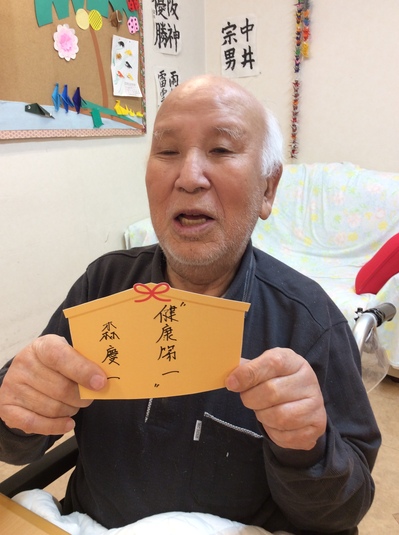 阪神
優勝
中井
宗男
〝健康第一〟
森慶一